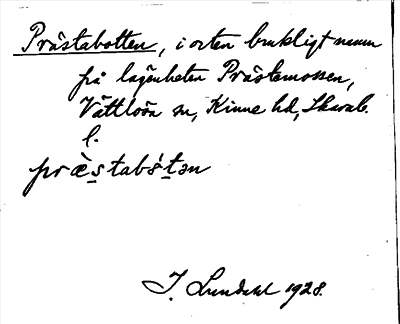 Prästabotten, i orten brukligt namn
på lägenheten Prästemossen,
Vättlösa sn, Kinne hd, Skarab.
l.
præ̀stabɷ́tən
I. Lundahl 1928.